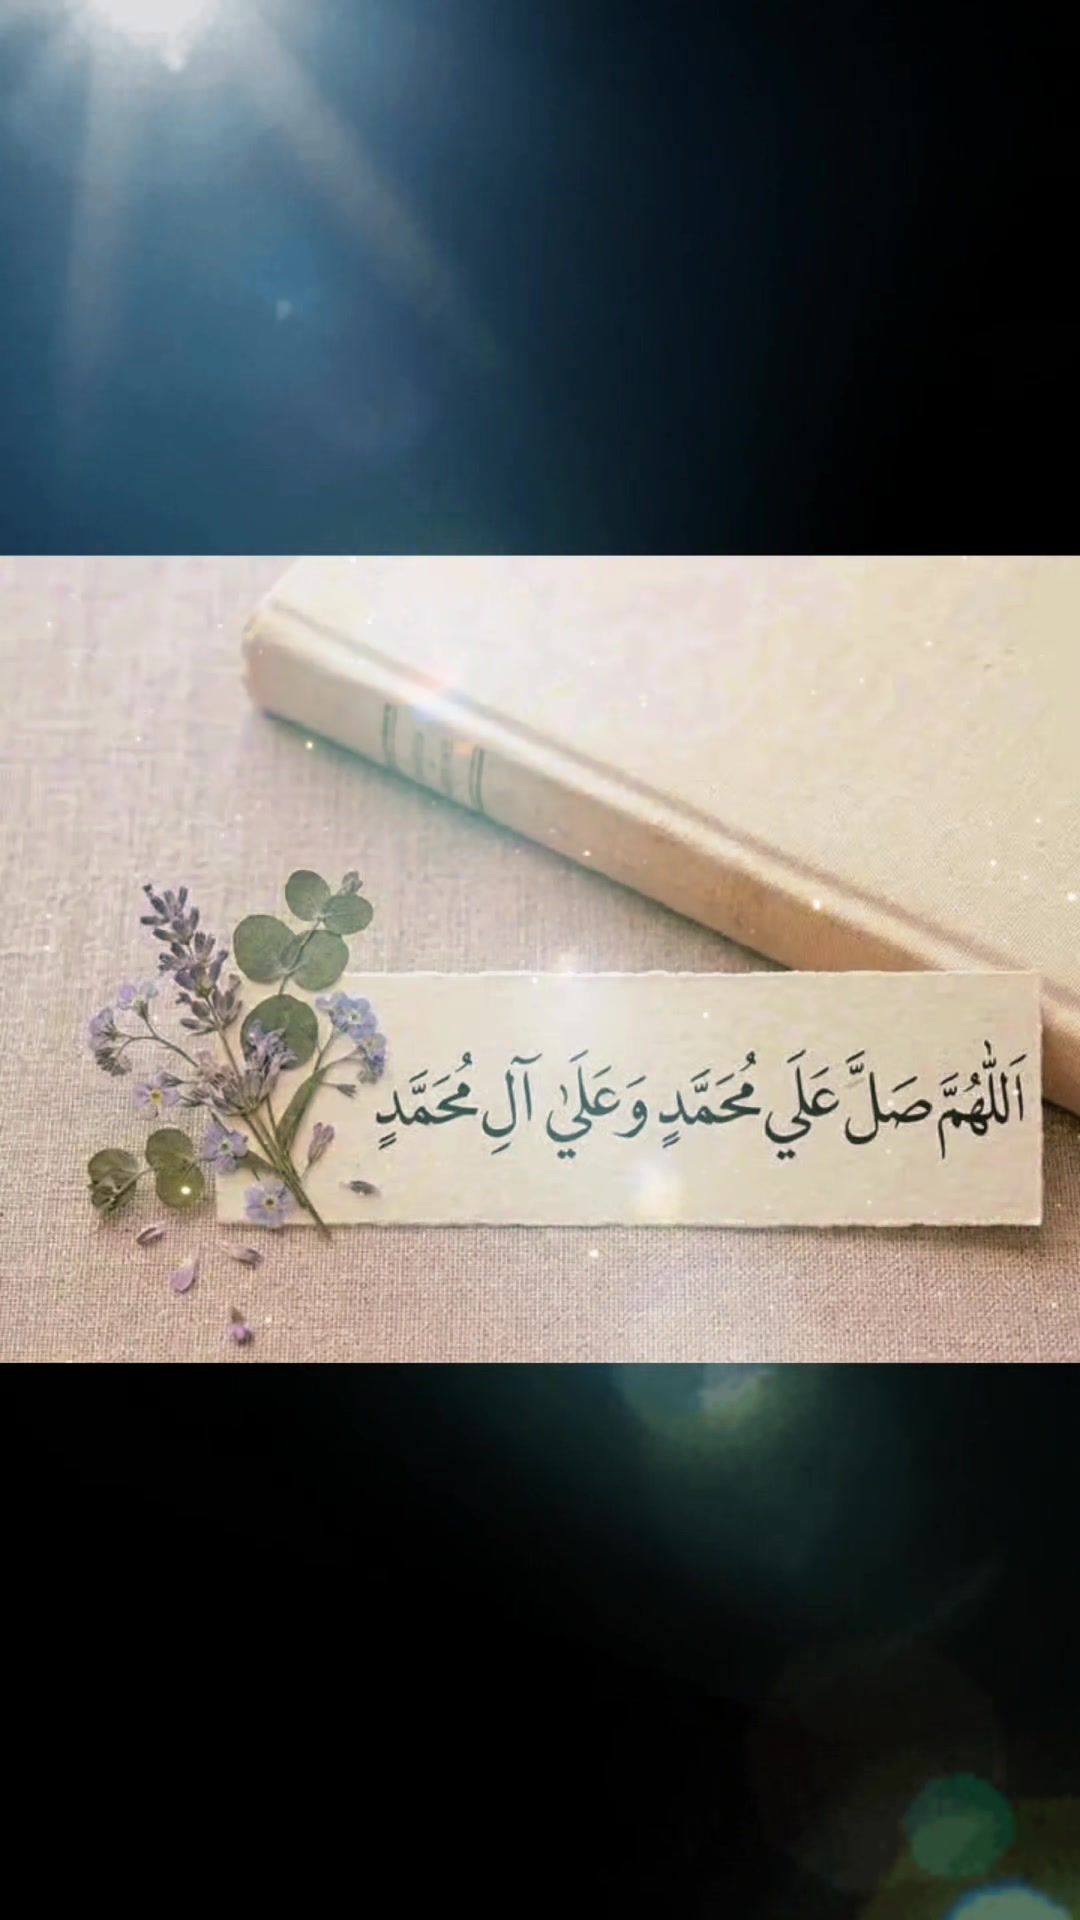 اَللّٰهُمَّ صَلَّ عَلَي مُحَمَّدٍ وَعَلَىٰ آلِ مُحَمَّدٍ